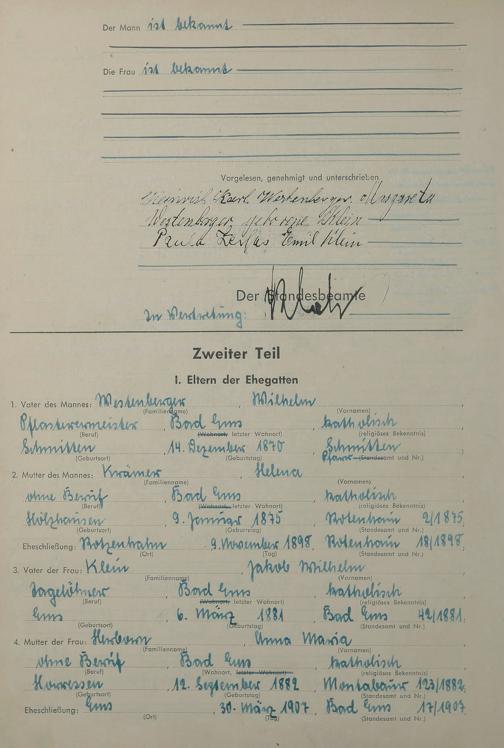 Der Mann ist bekannt
Die Frau ist bekannt
Vorgelesen, genehmigt und unterschrieben
Heinrich Karl Westenberger, Margareta
Westenberger geborene Klein
Paula Emil Klein
Der Standesbeamte
In Vertretung:
Zweiter Teil
I. Eltern der Ehegatten
1. Vater des Mannes: Westenberger, Wilhelm
(Familienname) (Vornamen)
Pflastermeister, Bad Ems, katholisch
(Beruf) (Wohnort, letzter Wohnort) (religiöses Bekenntnis)
Schmitten, 14. Dezember 1870, Schmitten
(Geburtsort) (Geburtstag) Pfarr-Standesamt und Nr.)
2. Mutter des Mannes: Krämer, Helena
(Familienname) (Vornamen)
ohne Beruf, Bad Ems, katholisch
(Beruf) (Wohnort, letzter Wohnort) (religiöses Bekenntnis)
Holzhausen, 9. Januar 1875, Rotenhain 2/1875
(Geburtsort) (Geburtstag) (Standesamt und Nr.)
Eheschließung: Rotzenhahn, 9. November 1898, Rotenhain 18/1898
(Ort) (Tag) (Standesamt und Nr.)
3. Vater der Frau: Klein, Jakob Wilhelm
(Familienname) (Vornamen)
Tagelöhner, Bad Ems, katholisch
(Beruf) (Wohnort, letzter Wohnort) (religiöses Bekenntnis)
Ems, 6. März 1881, Bad Ems 42/1881
(Geburtsort) (Geburtstag) (Standesamt und Nr.)
4. Mutter der Frau: Herborn, Anna Maria
(Familienname) (Vornamen)
ohne Beruf, Bad Ems, katholisch
(Beruf) (Wohnort, letzter Wohnort) (religiöses Bekenntnis)
Horressen, 12. September 1882, Montabaur 123/1882
(Geburtsort) (Geburtstag) (Standesamt und Nr.)
Eheschließung: Ems, 30. März 1907, Bad Ems 17/1907
(Ort) (Tag) (Standesamt und Nr.)